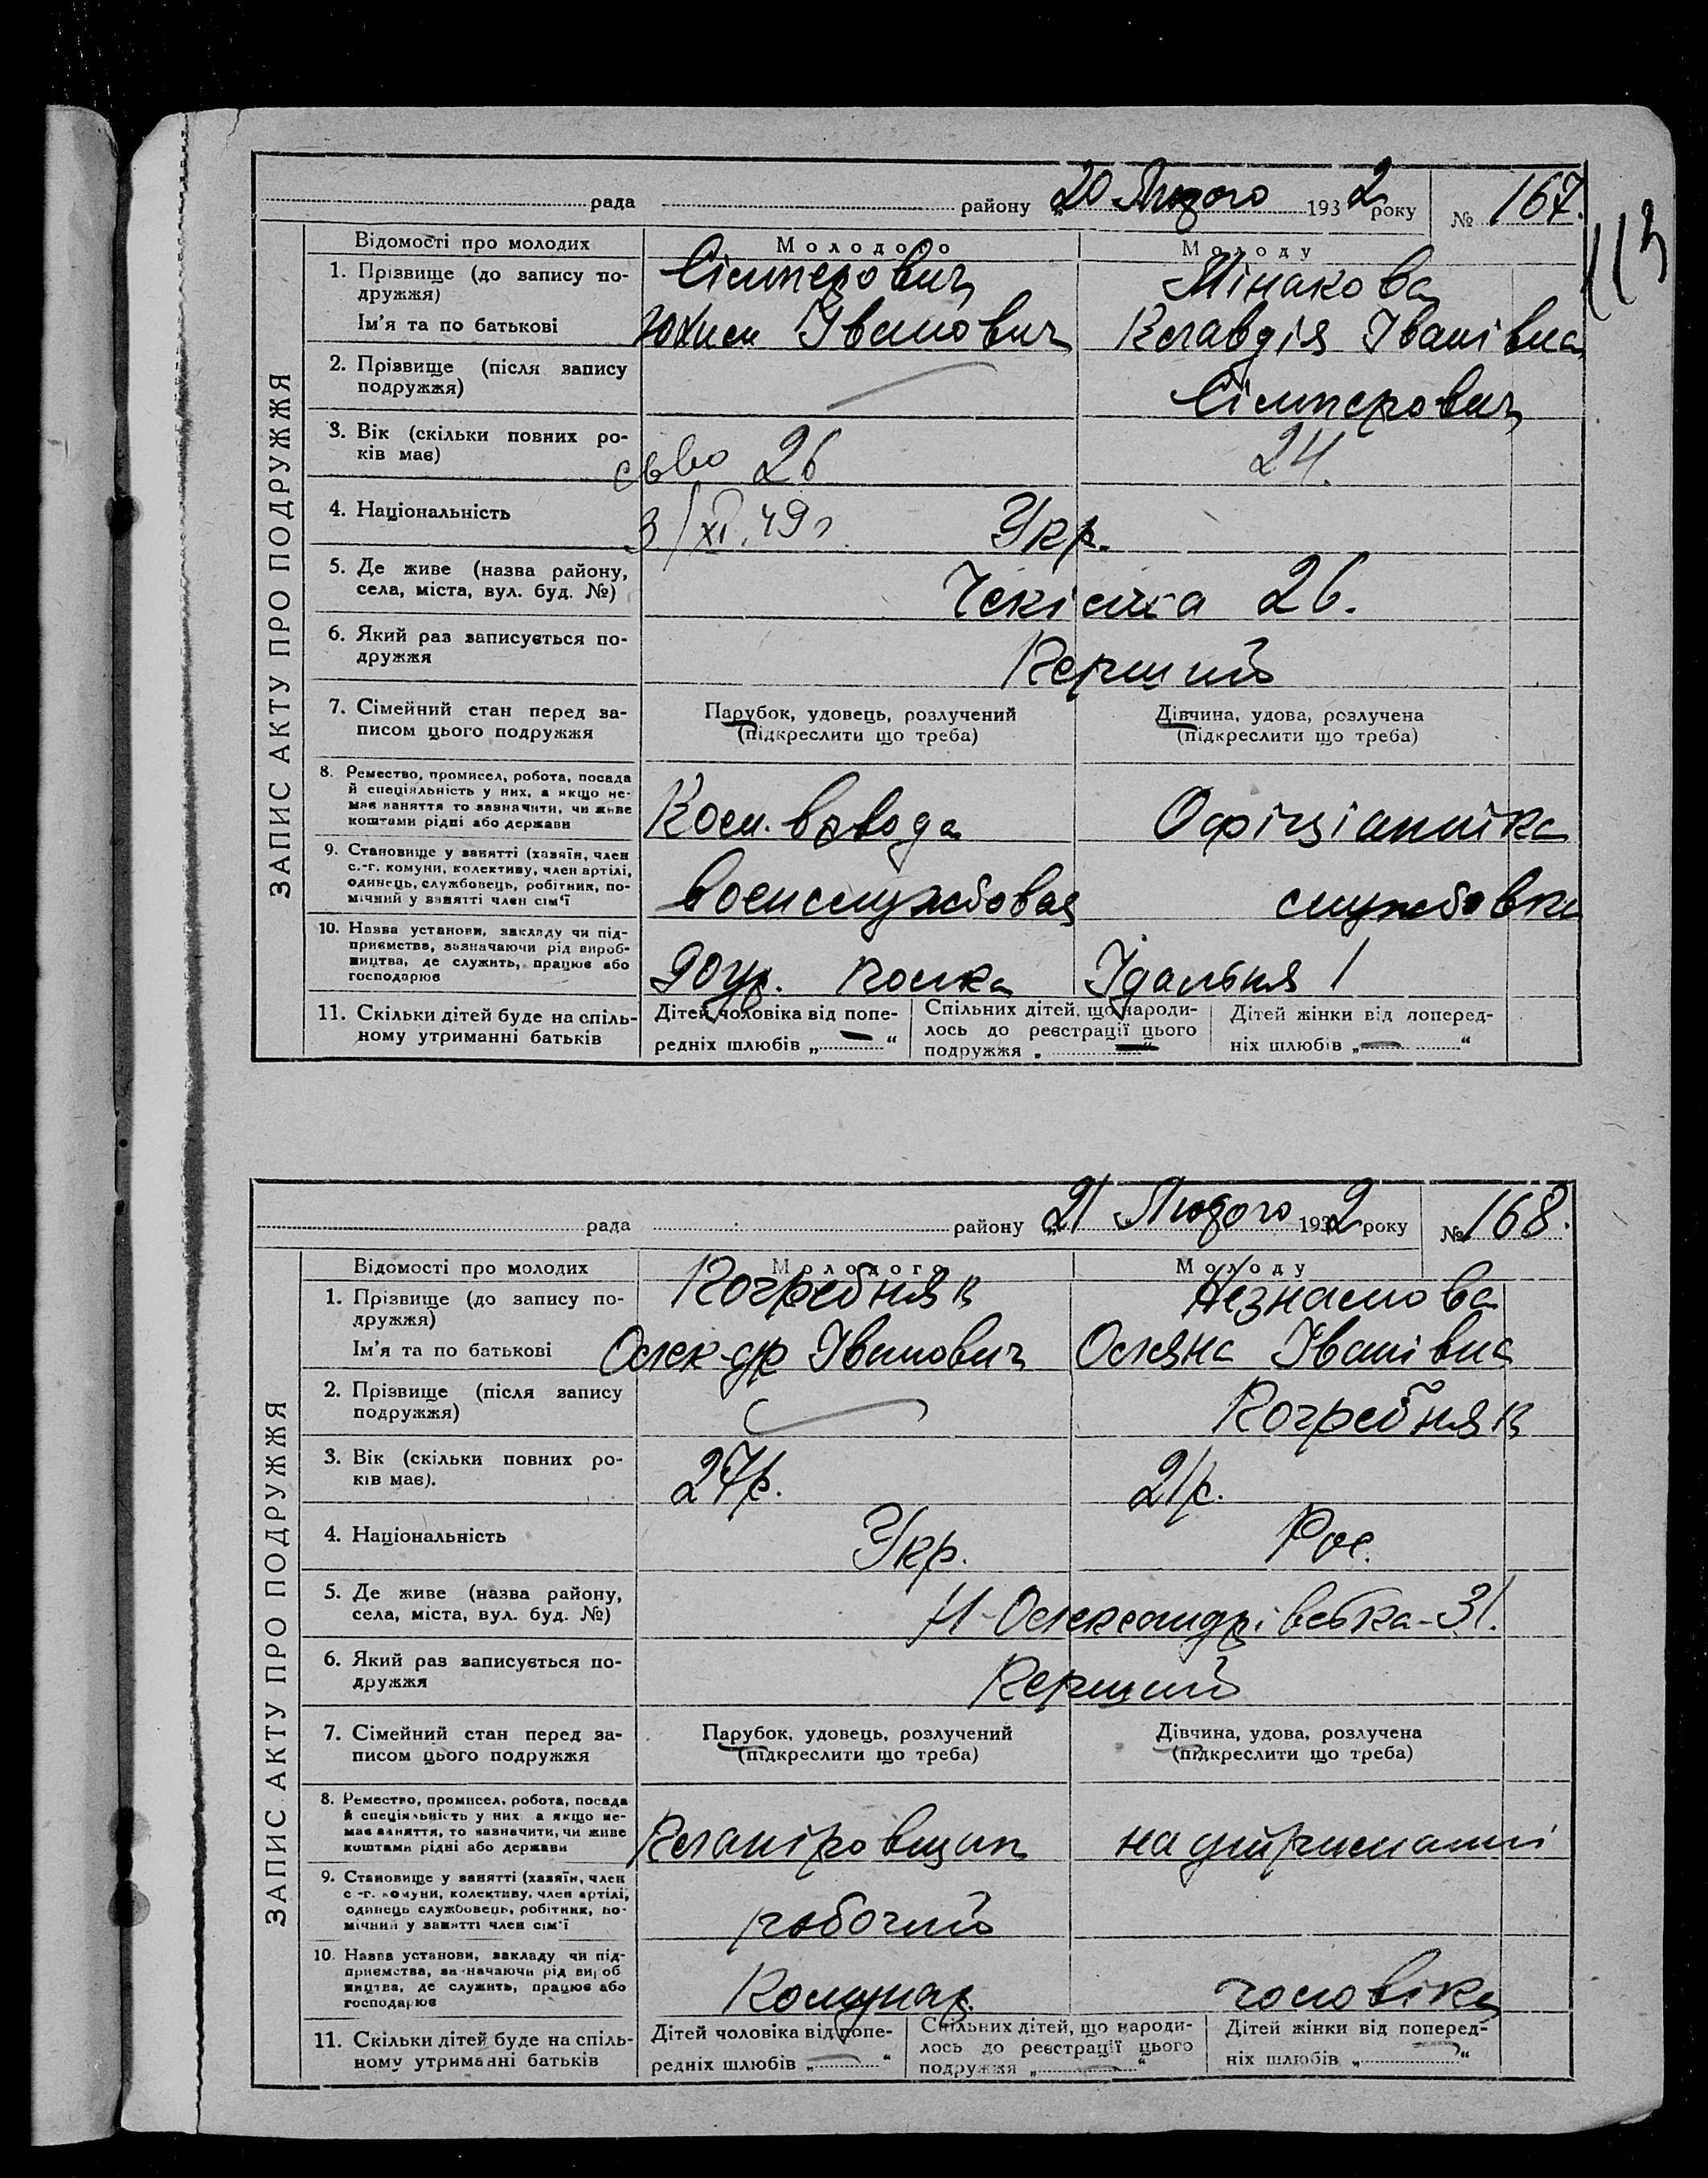 рада району „20 Лютого 1932 року № 167.
113
ЗАПИС АКТУ ПРО ПОДРУЖЖЯ
Відомості про молодих Молодого Молоду
1. Прізвище (до запису по-
дружжя) Мінакова
Ім'я та по батькові Іванович Клавдія Іванівна
2. Прізвище (після запису
подружжя)
3. Вік (скільки повних ро-
ків має) 26 24.
4. Національність 3/XI.49 г. Укр.
5. Де живе (назва району,
села, міста, вул. буд. №) 26.
6. Який раз записується по-
дружжя Перший
7. Сімейний стан перед за-
писом цього подружжя
Парубок, удовець, розлучений
(підкреслити що треба)
Дівчина, удова, розлучена
(підкреслити що треба)
8. Ремество, промисел, робота, посада
й спеціяльність у них, а якщо не-
має заняття то зазначити, чи живе
коштами рідні або держави
Ком. взвода Офіціантка
9. Становище у занятті (хазяїн, член
с.-г. комуни, колективу, член артілі,
одинець, службовець, робітник, по-
мічний у занятті член сім'ї
службовка
10. Назва установи, закладу чи під-
приємства, зазначаючи рід вироб-
ництва, де служить, працює або
господарює
полка Їдальня 1
11. Скільки дітей буде на спіль-
ному утриманні батьків
Дітей чоловіка від попе-
редніх шлюбів „—“
Спільних дітей, що народи-
лось до реєстрації цього
подружжя „—“
Дітей жінки від поперед-
ніх шлюбів „—“
рада району „21 Лютого 1932 року № 168.
ЗАПИС АКТУ ПРО ПОДРУЖЖЯ
Відомості про молодих Молодого Молоду
1. Прізвище (до запису по-
дружжя) Погребняк Незнамова
Ім'я та по батькові Олек-др Іванович Оляна Іванівна
2. Прізвище (після запису
подружжя) Погребняк
3. Вік (скільки повних ро-
ків має). 27р. 21р.
4. Національність Укр. Рос.
5. Де живе (назва району,
села, міста, вул. буд. №) Н-Олександрівська-31.
6. Який раз записується по-
дружжя Перший
7. Сімейний стан перед за-
писом цього подружжя
Парубок, удовець, розлучений
(підкреслити що треба)
Дівчина, удова, розлучена
(підкреслити що треба)
8. Ремество, промисел, робота, посада
й спеціяльність у них а якщо не-
має заняття, то зазначити, чи живе
коштами рідні або держави
Планіровщик на утриманні
9. Становище у занятті (хазяїн, член
с.-г. комуни, колективу, член артілі,
одинець службовець, робітник, по-
мічний у занятті член сім'ї
робочий
10. Назва установи, закладу чи під-
приємства, зазначаючи рід вироб
ництва, де служить, працює або
господарює
Комунар чоловіка
11. Скільки дітей буде на спіль-
ному утриманні батьків
Дітей чоловіка від попе-
редніх шлюбів „—“
Спільних дітей, що народи-
лось до реєстрації цього
подружжя „—“
Дітей жінки від поперед-
ніх шлюбів „—“